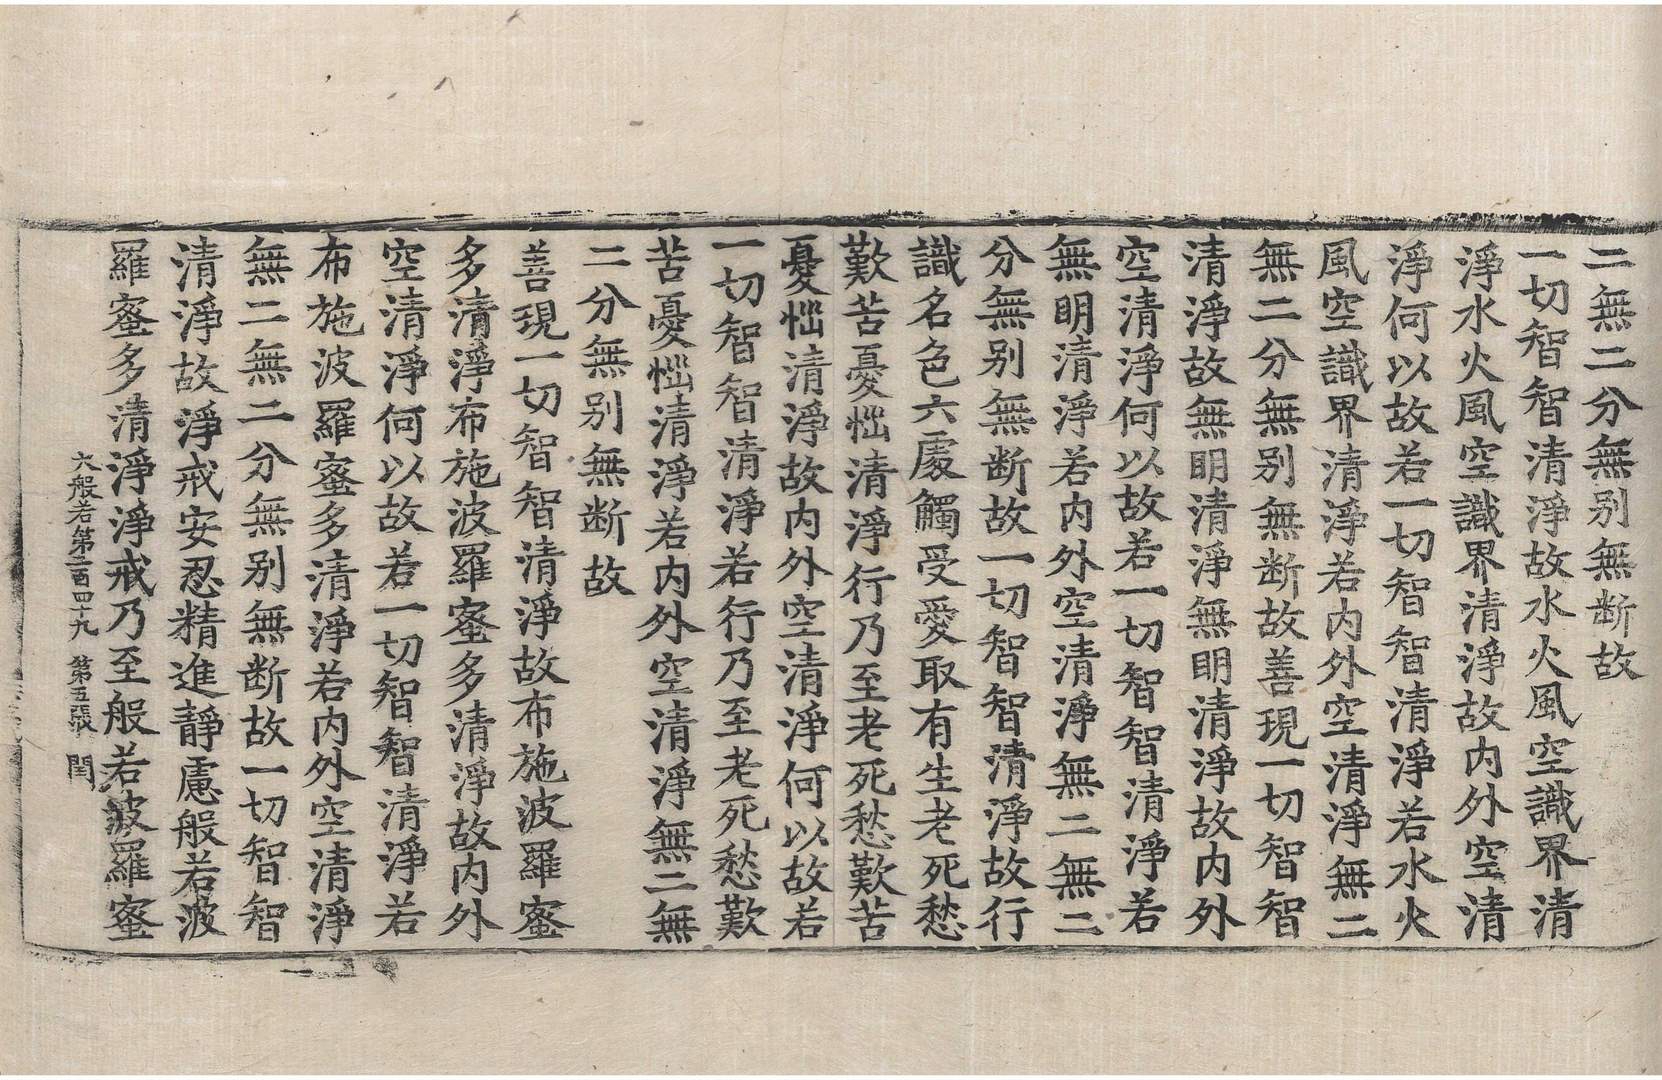 二無二分無别無断故
一切智智清淨故水火風空識界清
淨水火風空識界清淨故内外空清
淨何以故若一切智智清淨若水火
風空識界清淨若内外空清淨無二
無二分無别無断故善現一切智智
清淨故無明清淨無明清淨故内外
空清淨何以故若一切智智清淨若
無明清淨若内外空清淨無二無二
分無别無断故一切智智清淨故行
識名色六處觸受愛取有生老死愁
歎苦憂惱清淨行乃至老死愁歎苦
憂惱清淨故内外空清淨何以故若
一切智智清淨若行乃至老死愁歎
苦憂惱清淨若内外空清淨無二無
二分無别無断故
善現一切智智清淨故布施波羅蜜
多清淨布施波羅蜜多清淨故内外
空清淨何以故若一切智智清淨若
布施波羅蜜多清淨若内外空清淨
無二無二分無别無断故一切智智
清淨故淨戒安忍精進靜慮般若波
羅蜜多清淨淨戒乃至般若波羅蜜
大般若第二百四十九 第五張 閏